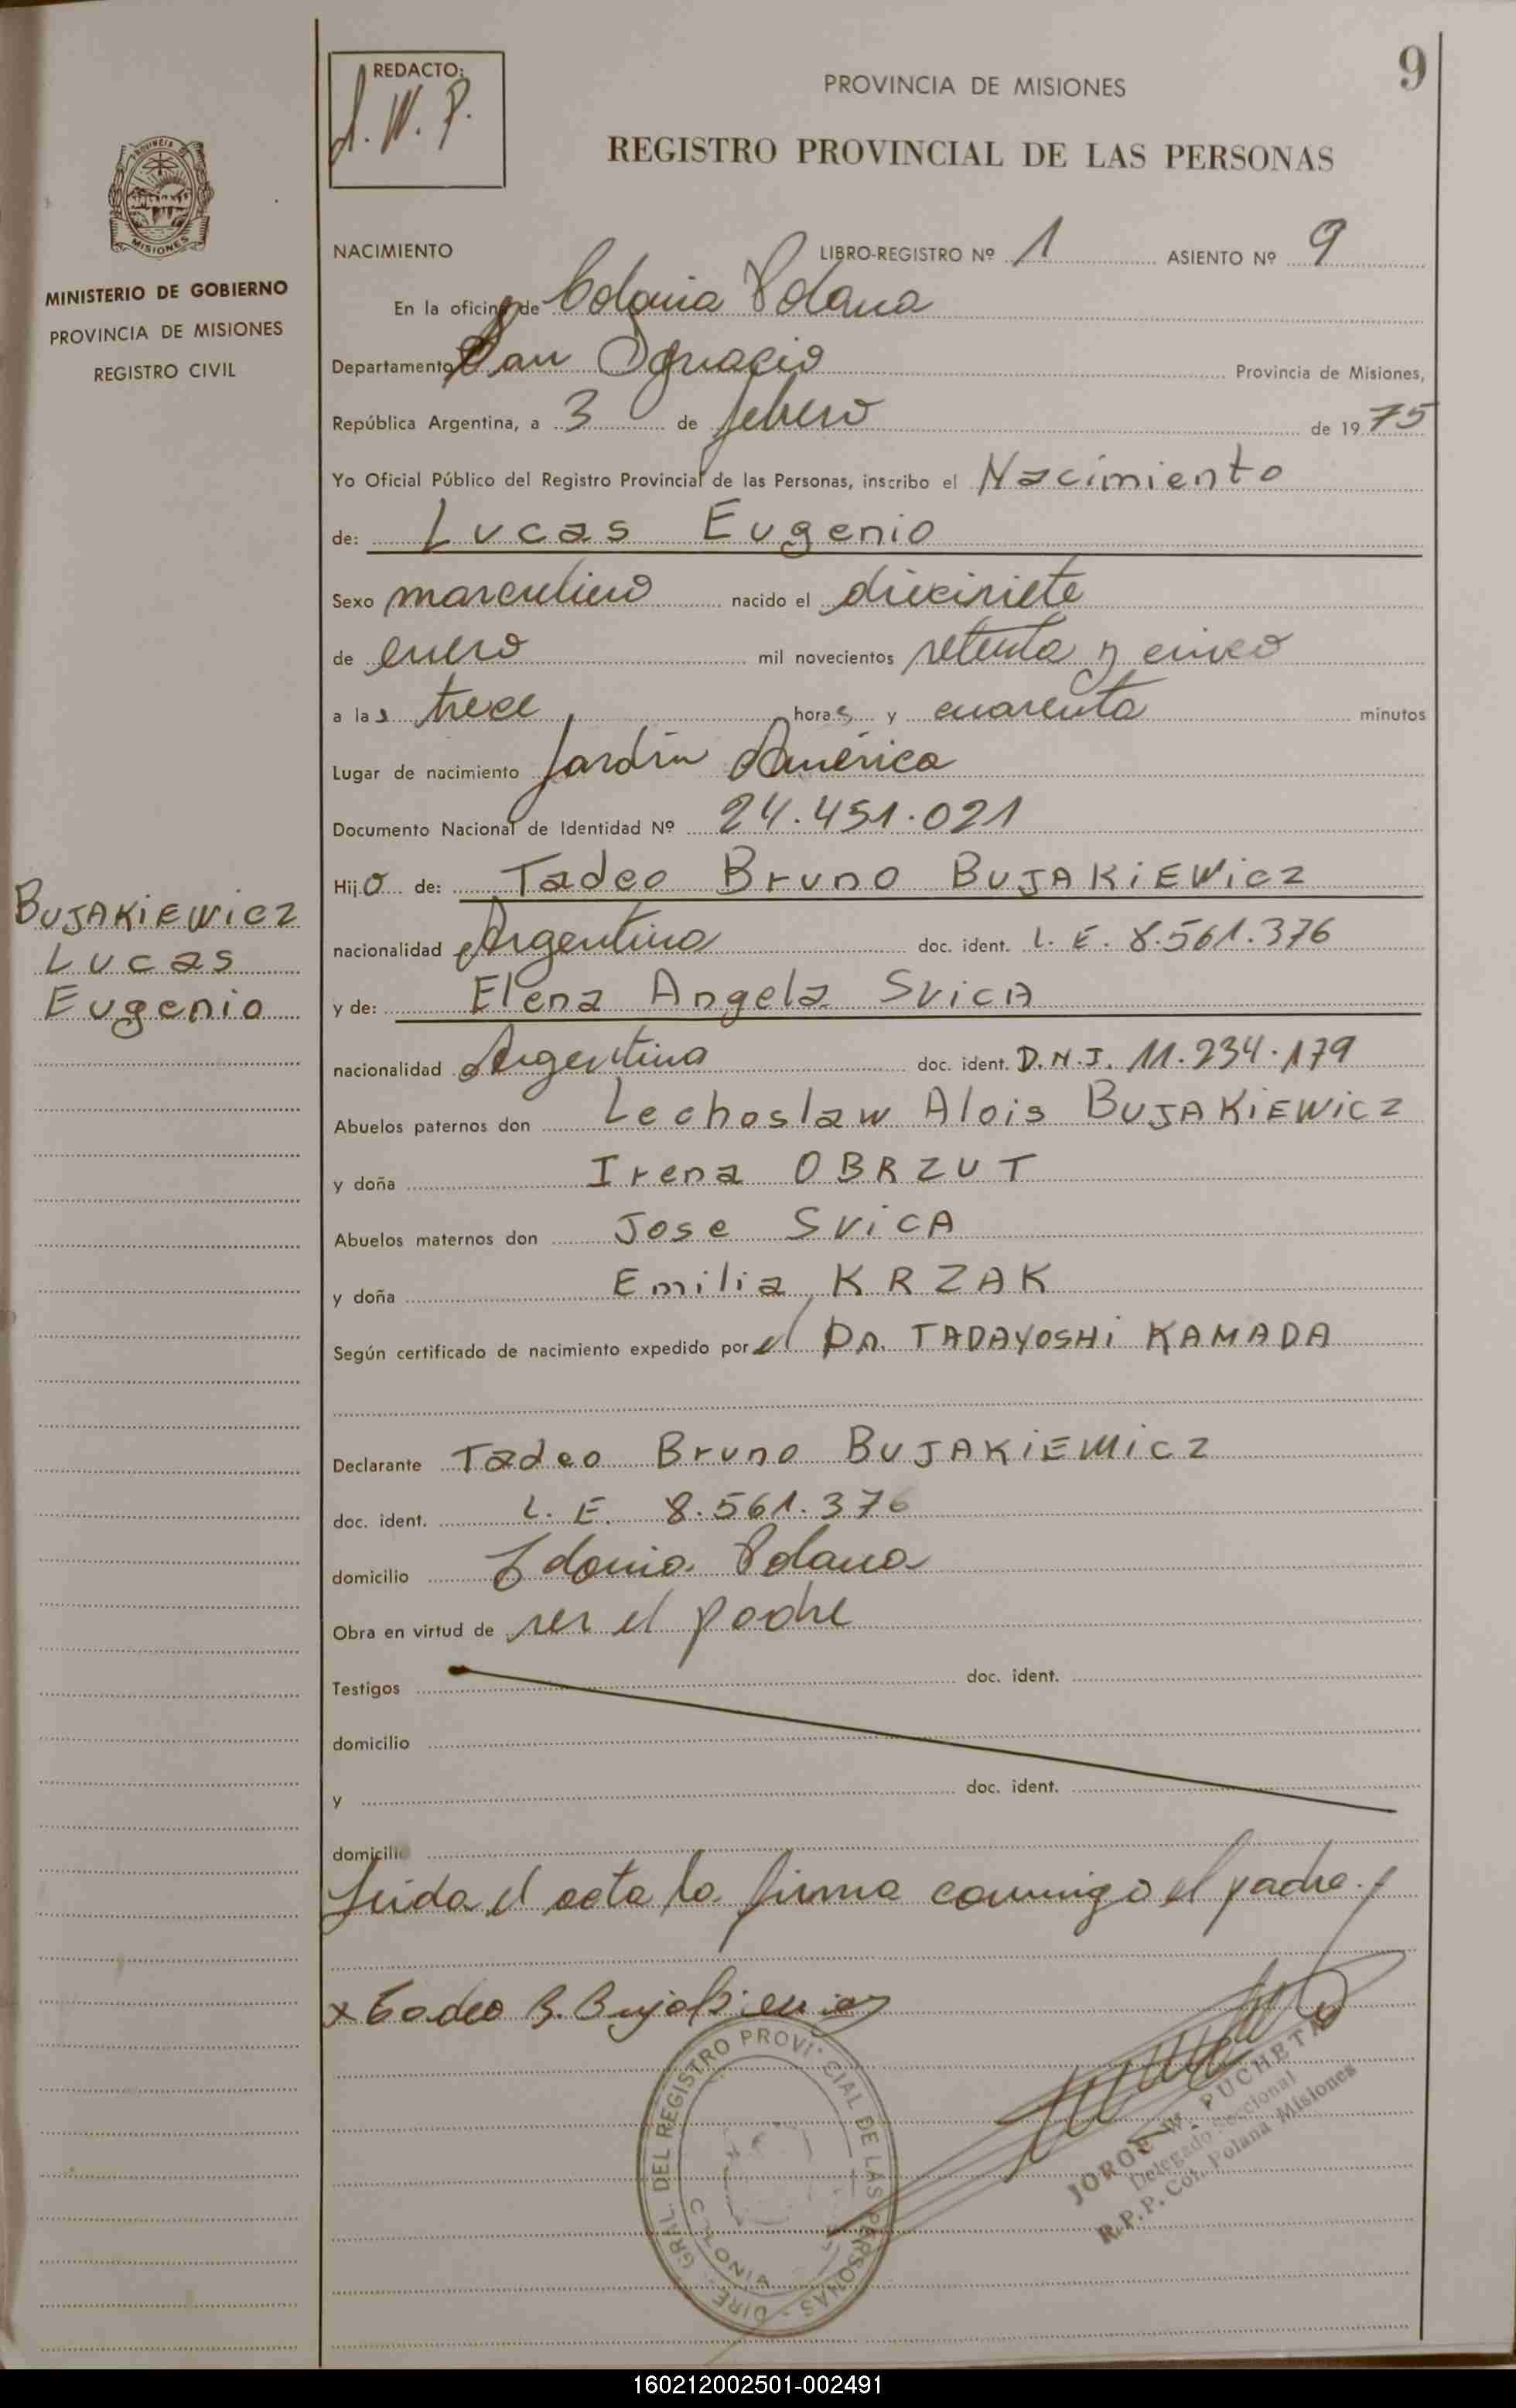 REDACTO:
J. W. P.
PROVINCIA DE MISIONES
9
REGISTRO PROVINCIAL DE LAS PERSONAS
PROVINCIA
MISIONES
MINISTERIO DE GOBIERNO
PROVINCIA DE MISIONES
REGISTRO CIVIL
NACIMIENTO LIBRO-REGISTRO Nº 1 ASIENTO Nº 9
En la oficina de Colonia Polana
Departamento San Ignacio Provincia de Misiones,
República Argentina, a 3 de febrero de 1975
Yo Oficial Público del Registro Provincial de las Personas, inscribo el Nacimiento
de: Lucas Eugenio
Sexo masculino nacido el diecisiete
de enero mil novecientos setenta y cinco
a las trece horas y cuarenta minutos
Lugar de nacimiento Jardín América
Documento Nacional de Identidad Nº 24.451.021
Hijo de: Tadeo Bruno BUJAKiEWicz
BUJAKiEWicz
Lucas
Eugenio
nacionalidad Argentina doc. ident. L. E. 8.561.376
y de: Elena Angela SViCA
nacionalidad Argentina doc. ident. D.N.I. 11.234.179
Abuelos paternos don Lechoslaw Alois BUJAKiEWicz
y doña Irena OBRZUT
Abuelos maternos don Jose SViCA
y doña Emilia KRZAK
Según certificado de nacimiento expedido por el DR. TADAYOSHi KAMADA
Declarante Tadeo Bruno BUJAKiEWicz
doc. ident. L. E. 8.561.376
domicilio Colonia Polana
Obra en virtud de ser el padre
Testigos doc. ident.
domicilio
y doc. ident.
domicilio
Leida el acta la firma conmigo el padre.
x Tadeo B. Bujakiewicz
DIRE. GRAL. DEL REGISTRO PROVINCIAL DE LAS PERSONAS -
COLONIA
JORGE W. PUCHETA
Delegado Seccional
R.P.P. Col. Polana Misiones
160212002501-002491